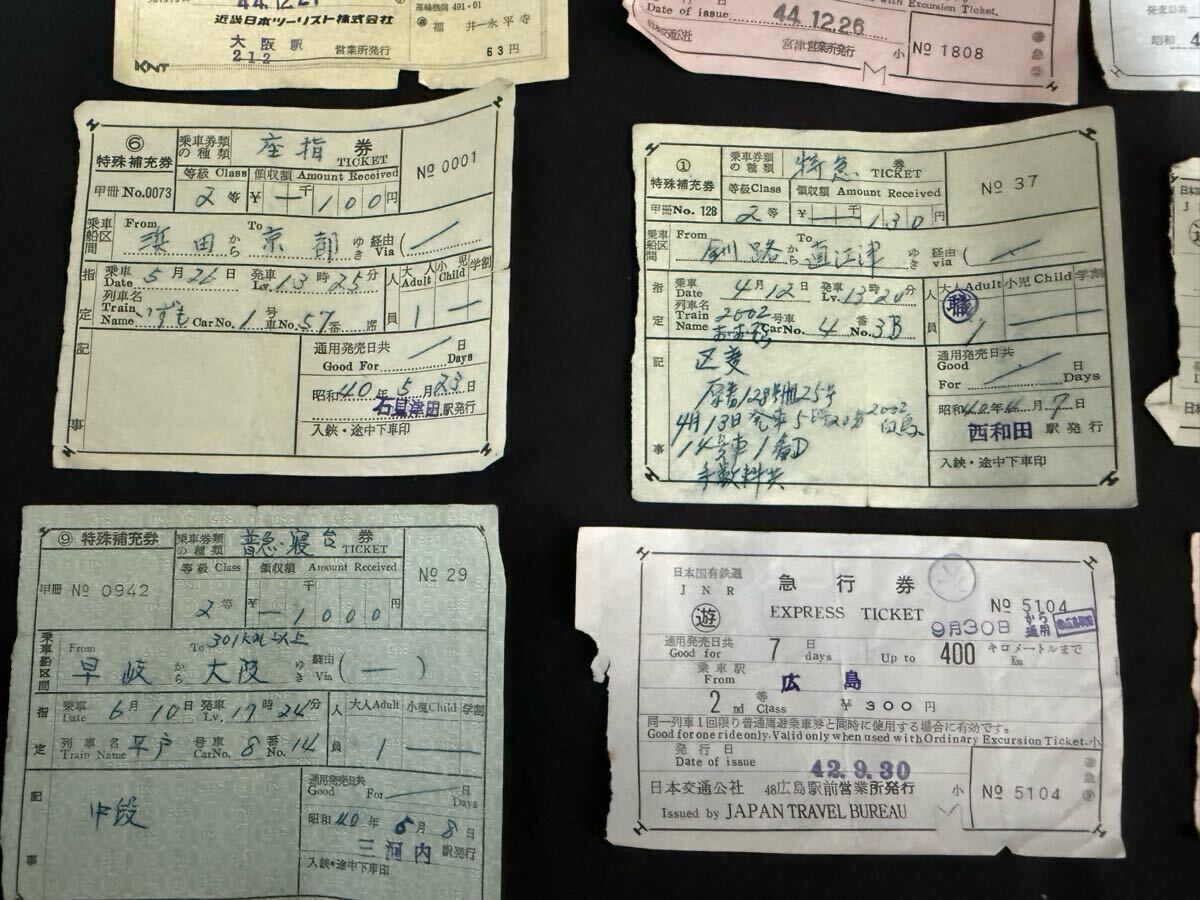 44.12.21
近畿日本ツーリスト株式会社
大阪駅
212
営業所発行
KNT
運輸機関 491・01
福井ー永平寺
63円
with Excursion Ticket.
Date of issue
44.12.26
日本交通公社
宮津営業所発行
小
No 1808
昭和 4
⑥
特殊補充券
甲冊 No.0073
乗車券類の種類
座指 券
TICKET
等級 Class
領収額 Amount Received
2等
¥ 一千100円
No 0001
乗車船区間
From
浜田から
To
京都ゆき
経由
Via
(
指定
乗車
Date
5月26日
発車
Lv.
13時25分
列車名
Train
Name
いずも
Car No.
1号車
No.
57番
席
人員
大人
Adult
小児
Child
学割
1
記事
通用発売日共
Good For
日
Days
昭和40年5月23日
石見津田
駅発行
入鋏・途中下車印
①
特殊補充券
甲冊No. 128
乗車券類の種類
特急 券
TICKET
等級Class
領収額 Amount Received
2等
¥ 一千130円
No 37
乗車船区間
From
釧路から
To
直江津ゆき
経由
via
(
指定
乗車
Date
4月12日
発車
Lv.
13 20分
列車名
Train
Name
2002
おおぞら
号車
Car No.
4
番
No.
3B
人員
大人 Adult
小児 Child
学割
職
1
記事
区変
原券128号冊25号
4月13日発車5時20分2002
白鳥
14号車1番D
手数料共
通用発売日共
Good
For
日
Days
昭和40年4月7日
西和田
駅発行
入鋏・途中下車印
⑨ 特殊補充券
甲冊 No 0942
乗車券類の種類
普急・寝台 券
TICKET
等級 Class
領収額 Amount Received
2等
¥ 一千1000円
No 29
乗車船区間
From
早岐から
To
301キロ以上
大阪ゆき
経由
Via
(一)
指定
乗車
Date
6月10日
発車
Lv.
17時24分
列車名
Train Name
平戸
号車
CarNo.
8
番
No.
14
人員
大人Adult
小児Child
学割
1
記事
中段
通用発売日共
Good For
日
Days
昭和40年6月8日
三河内
駅発行
入鋏・途中下車印
日本国有鉄道
JNR
遊
急行券
EXPRESS TICKET
No 5104
9月30日から通用
通用発売日共
Good for
7
日
days
Up to
400
キロメートルまで
Km
乗車駅
From
広島
2等
nd Class
¥ 300円
同一列車1回限り普通周遊乗車券と同時に使用する場合に有効です。
Good for one ride only. Valid only when used with Ordinary Excursion Ticket.
小
発行日
Date of issue
42.9.30
日本交通公社 48広島駅前営業所発行
Issued by JAPAN TRAVEL BUREAU
小
No 5104